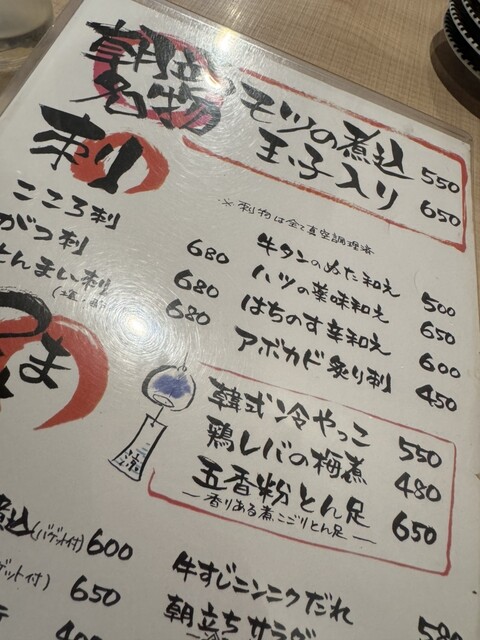 朝立ち名物
モツの煮込 550
玉子入り 650
刺
※刺物は全て真空調理済
こころ刺 680
がつ刺 680
とんまい刺 680
牛タンのぬた和え 500
ハツの薬味和え 650
はちのす辛和え 600
アボカド炙り刺 450
涼
韓式冷やっこ 550
鶏レバの梅煮 480
五香粉とん足 650
―香りある煮こごりとん足―
煮込(バゲット付) 600
ゲット付) 650
牛すじニンニクだれ
朝立ちサラダ